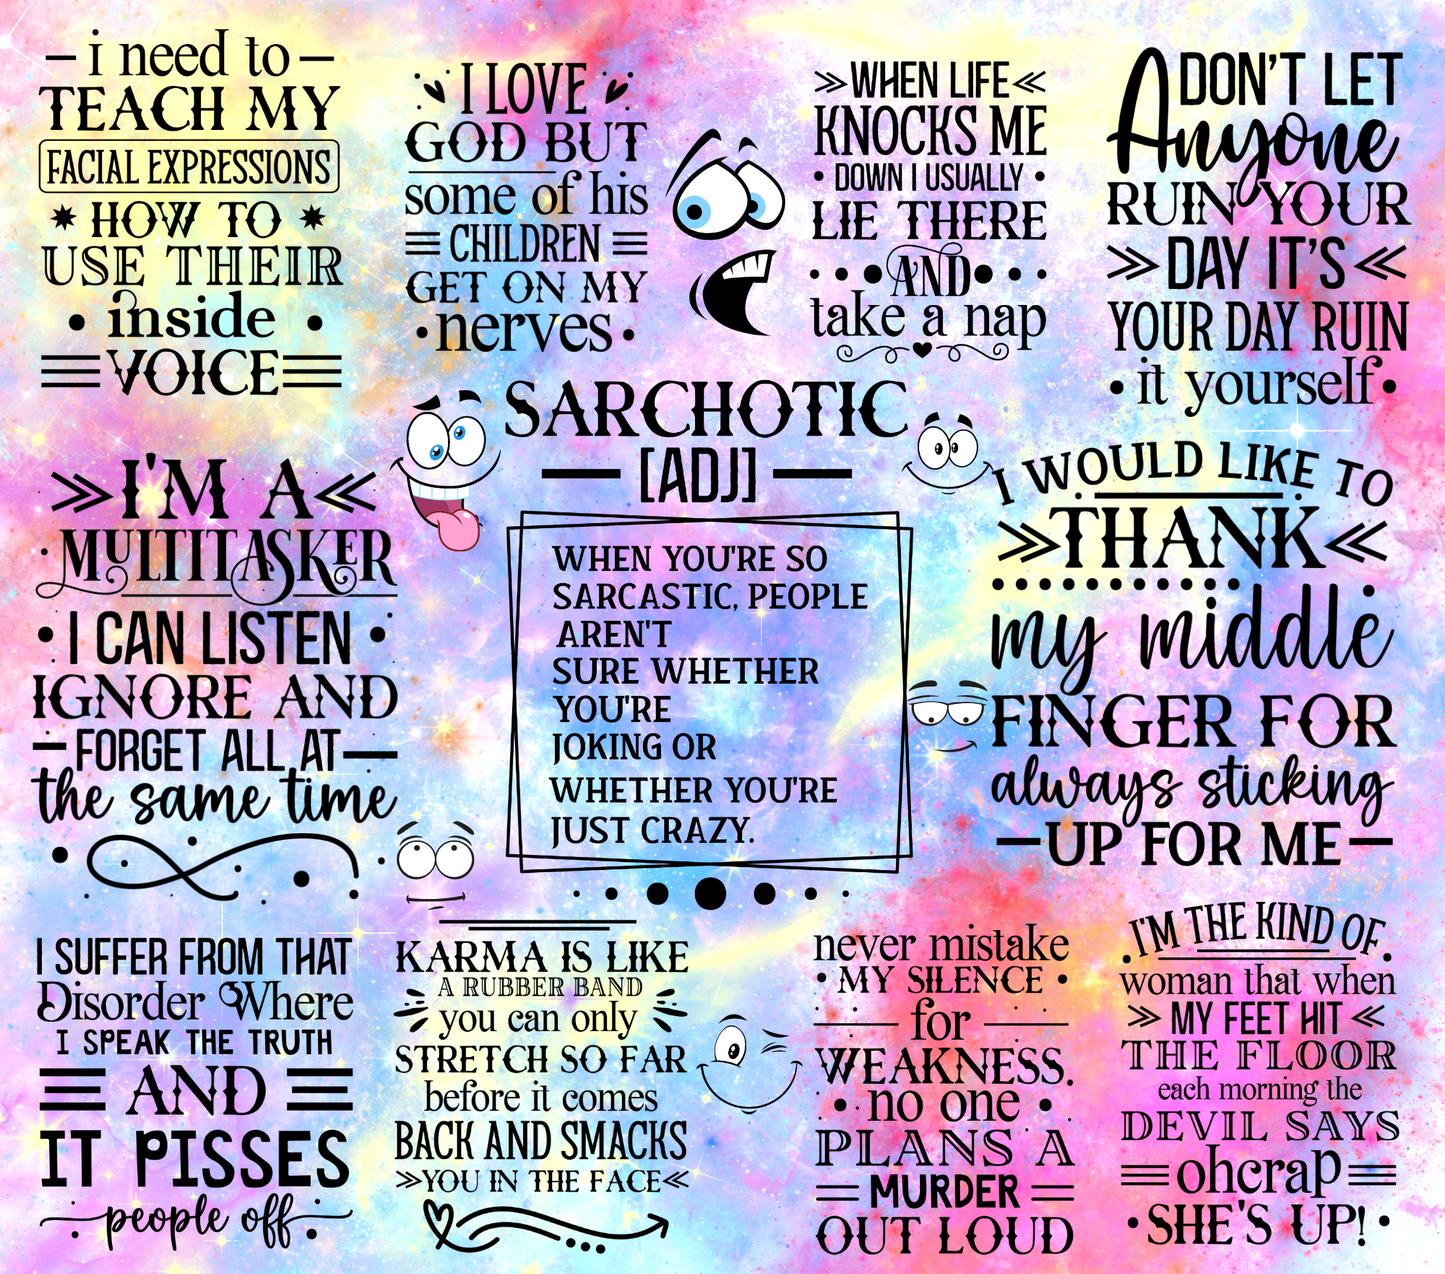 i need to
TEACH MY
FACIAL EXPRESSIONS
HOW TO
USE THEIR
inside
VOICE
I LOVE
GOD BUT
some of his
CHILDREN
GET ON MY
nerves
WHEN LIFE
KNOCKS ME
DOWN I USUALLY
LIE THERE
AND
take a nap
DON'T LET
Anyone
RUIN YOUR
DAY IT'S
YOUR DAY RUIN
it yourself
SARCHOTIC
[ADJ]
WHEN YOU'RE SO
SARCASTIC, PEOPLE
AREN'T
SURE WHETHER
YOU'RE
JOKING OR
WHETHER YOU'RE
JUST CRAZY.
I'M A
MULTITASKER
I CAN LISTEN
IGNORE AND
FORGET ALL AT
the same time
I WOULD LIKE TO
THANK
my middle
FINGER FOR
always sticking
UP FOR ME
I SUFFER FROM THAT
Disorder Where
I SPEAK THE TRUTH
AND
IT PISSES
people off
KARMA IS LIKE
A RUBBER BAND
you can only
STRETCH SO FAR
before it comes
BACK AND SMACKS
YOU IN THE FACE
never mistake
MY SILENCE
for
WEAKNESS.
no one
PLANS A
MURDER
OUT LOUD
I'M THE KIND OF
woman that when
MY FEET HIT
THE FLOOR
each morning the
DEVIL SAYS
ohcrap
SHE'S UP!